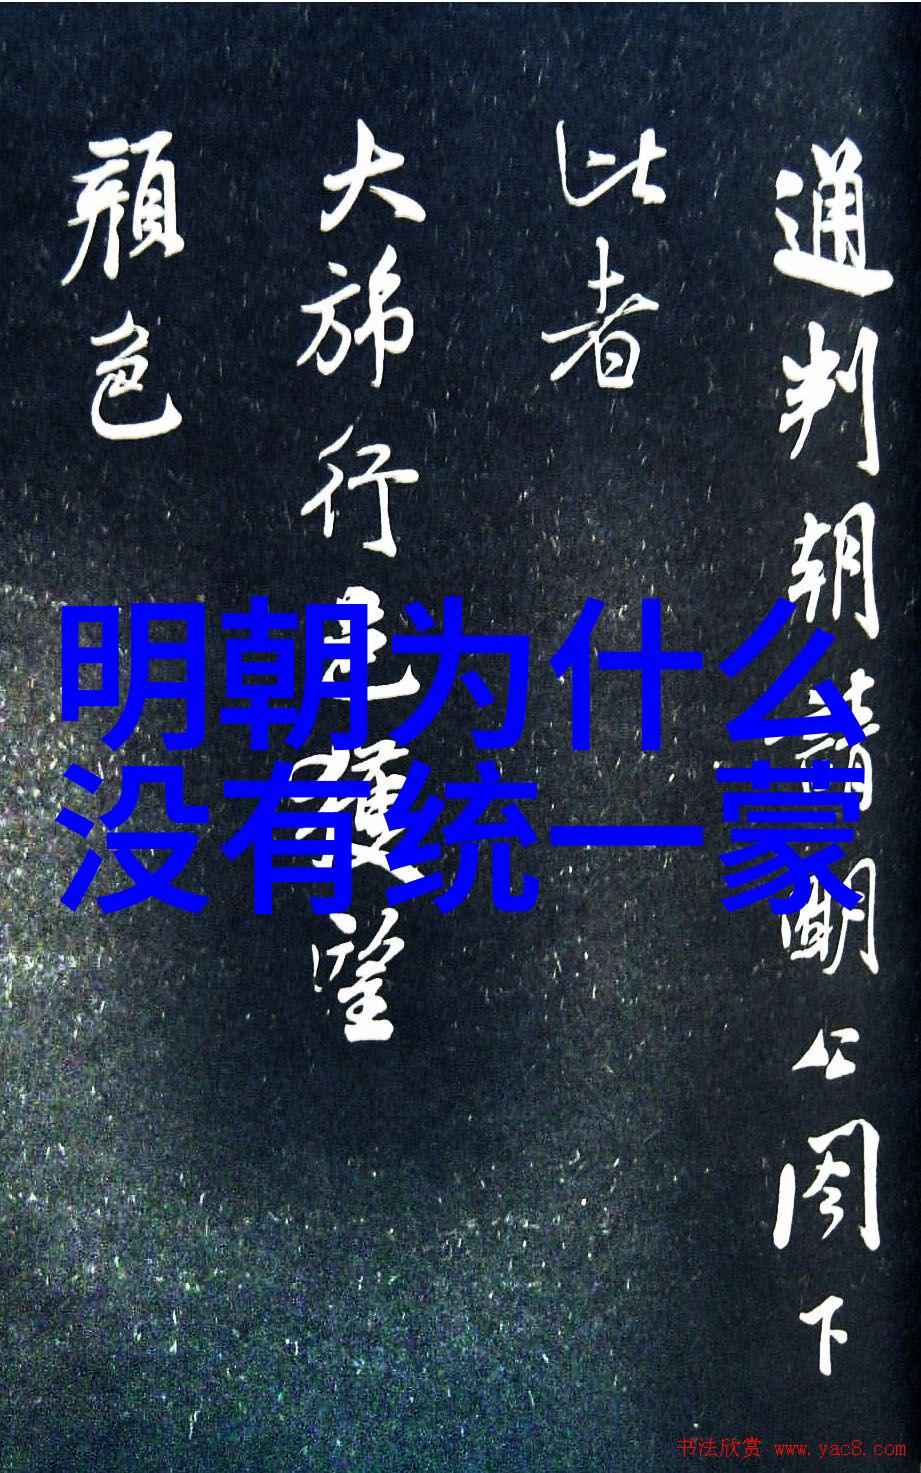 通判朝請明公閤下
比者
大旆行邑獲望
顏色
明朝为什么
没有统一蒙
书法欣赏 www.yac8.com